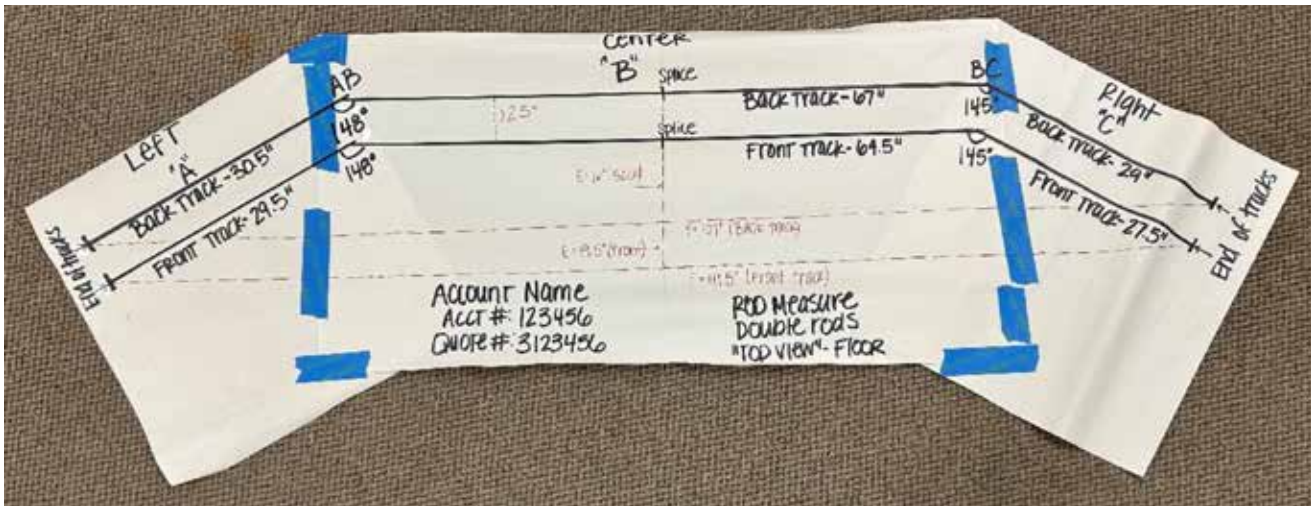 Center
"B"
Left
"A"
Right
"C"
AB
BC
splice
splice
148°
148°
145°
145°
Back Track-30.5"
Front Track-29.5"
Back Track-67"
Front Track-64.5"
Back Track-29"
Front Track-27.5"
End of tracks
End of tracks
(Back track)
(Front track)
Account Name
Acct #: 123456
Quote #: 3123456
Rod Measure
Double rods
"Top View"- Floor